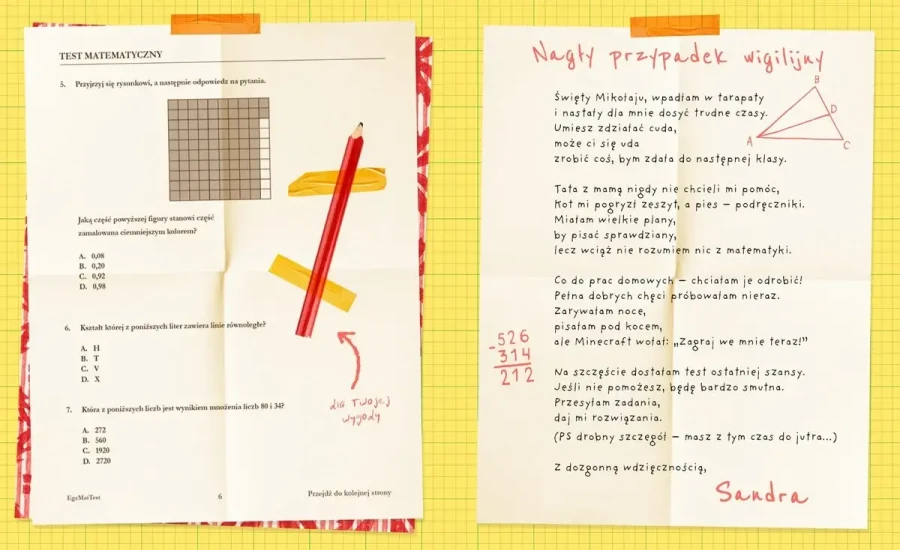 TEST MATEMATYCZNY
5. Przyjrzyj się rysunkowi, a następnie odpowiedz na pytania.
Jaką część powyższej figury stanowi część
zamalowana ciemniejszym kolorem?
A. 0,08
B. 0,20
C. 0,92
D. 0,98
6. Kształt której z poniższych liter zawiera linie równoległe?
A. H
B. T
C. V
D. X
7. Która z poniższych liczb jest wynikiem mnożenia liczb 80 i 34?
A. 272
B. 560
C. 1920
D. 2720
EgzMatTest
6
Przejdź do kolejnej strony
dla Twojej
wygody
Nagły przypadek wigilijny
Święty Mikołaju, wpadłam w tarapaty
i nastały dla mnie dosyć trudne czasy.
Umiesz zdziałać cuda,
może ci się uda
zrobić coś, bym zdała do następnej klasy.
B
D
A
C
Tata z mamą nigdy nie chcieli mi pomóc,
Kot mi pogryzł zeszyt, a pies – podręczniki.
Miałam wielkie plany,
by pisać sprawdziany,
lecz wciąż nie rozumiem nic z matematyki.
Co do prac domowych – chciałam je odrobić!
Pełna dobrych chęci próbowałam nieraz.
Zarywałam noce,
pisałam pod kocem,
ale Minecraft wołał: „Zagraj we mnie teraz!”
-526
314
212
Na szczęście dostałam test ostatniej szansy.
Jeśli nie pomożesz, będę bardzo smutna.
Przesyłam zadania,
daj mi rozwiązania.
(PS drobny szczegół – masz z tym czas do jutra...)
Z dozgonną wdzięcznością,
Sandra